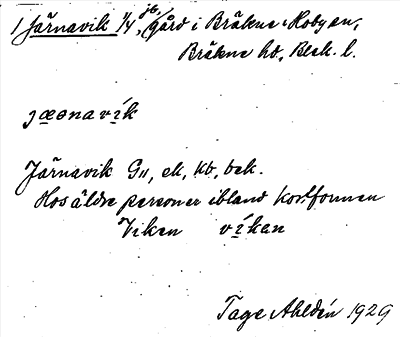 1 Järnavik 1/4, jb, gård i Bräkne-Hoby sn,
Bräkne hd, Blek. l.
jæɘnavík
Järnavik G11, ek, kb, bek.
Hos äldre personer ibland kortformen
Viken víkan
Tage Ahldén 1929